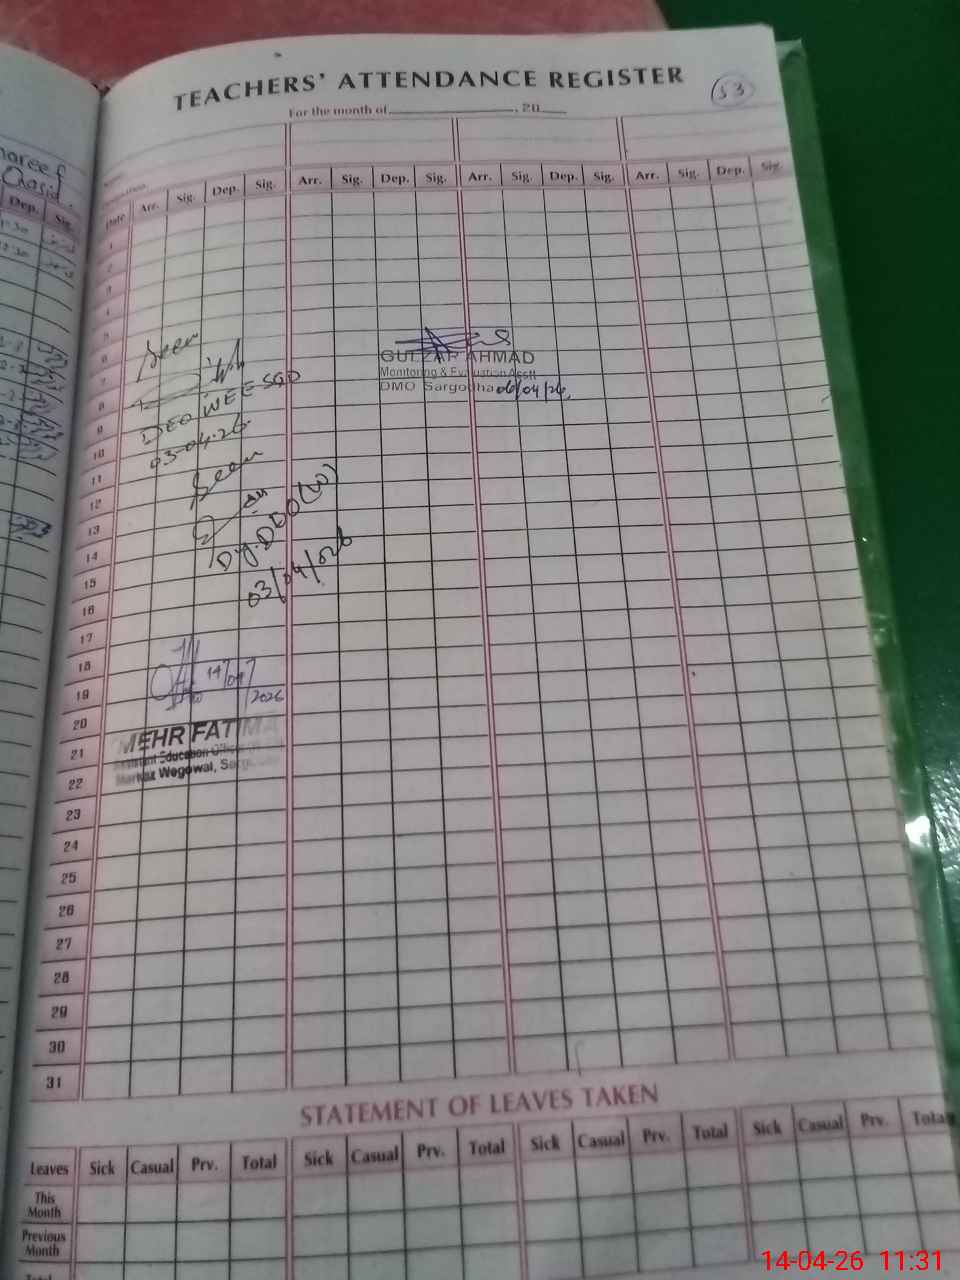 TEACHERS' ATTENDANCE REGISTER
53
For the month of , 20
Arr. Sig. Dep. Sig. Arr. Sig. Dep. Sig. Arr. Sig. Dep. Sig.
Date Arr. Sig. Dep. Sig.
Dep. Sig.
1
2
3
4
5
6
7
8
9
10
11
12
13
14
15
16
17
18
19
20
21
22
23
24
25
26
27
28
29
30
31
Seen
DEO WEE SGD
03-04-26
GULZAR AHMAD
Monitoring & Evaluation Asstt
DMO Sargodha 06/04/26,
Seen
Dy. DEO (W)
03/04/026
14/04/2026
MEHR FATIMA
Assistant Education
Markaz Wegowal, Sargodha
STATEMENT OF LEAVES TAKEN
Leaves Sick Casual Prv. Total Sick Casual Prv. Total Sick Casual Prv. Total Sick Casual Prv. Total
This Month
Previous Month
Total
14-04-26 11:31